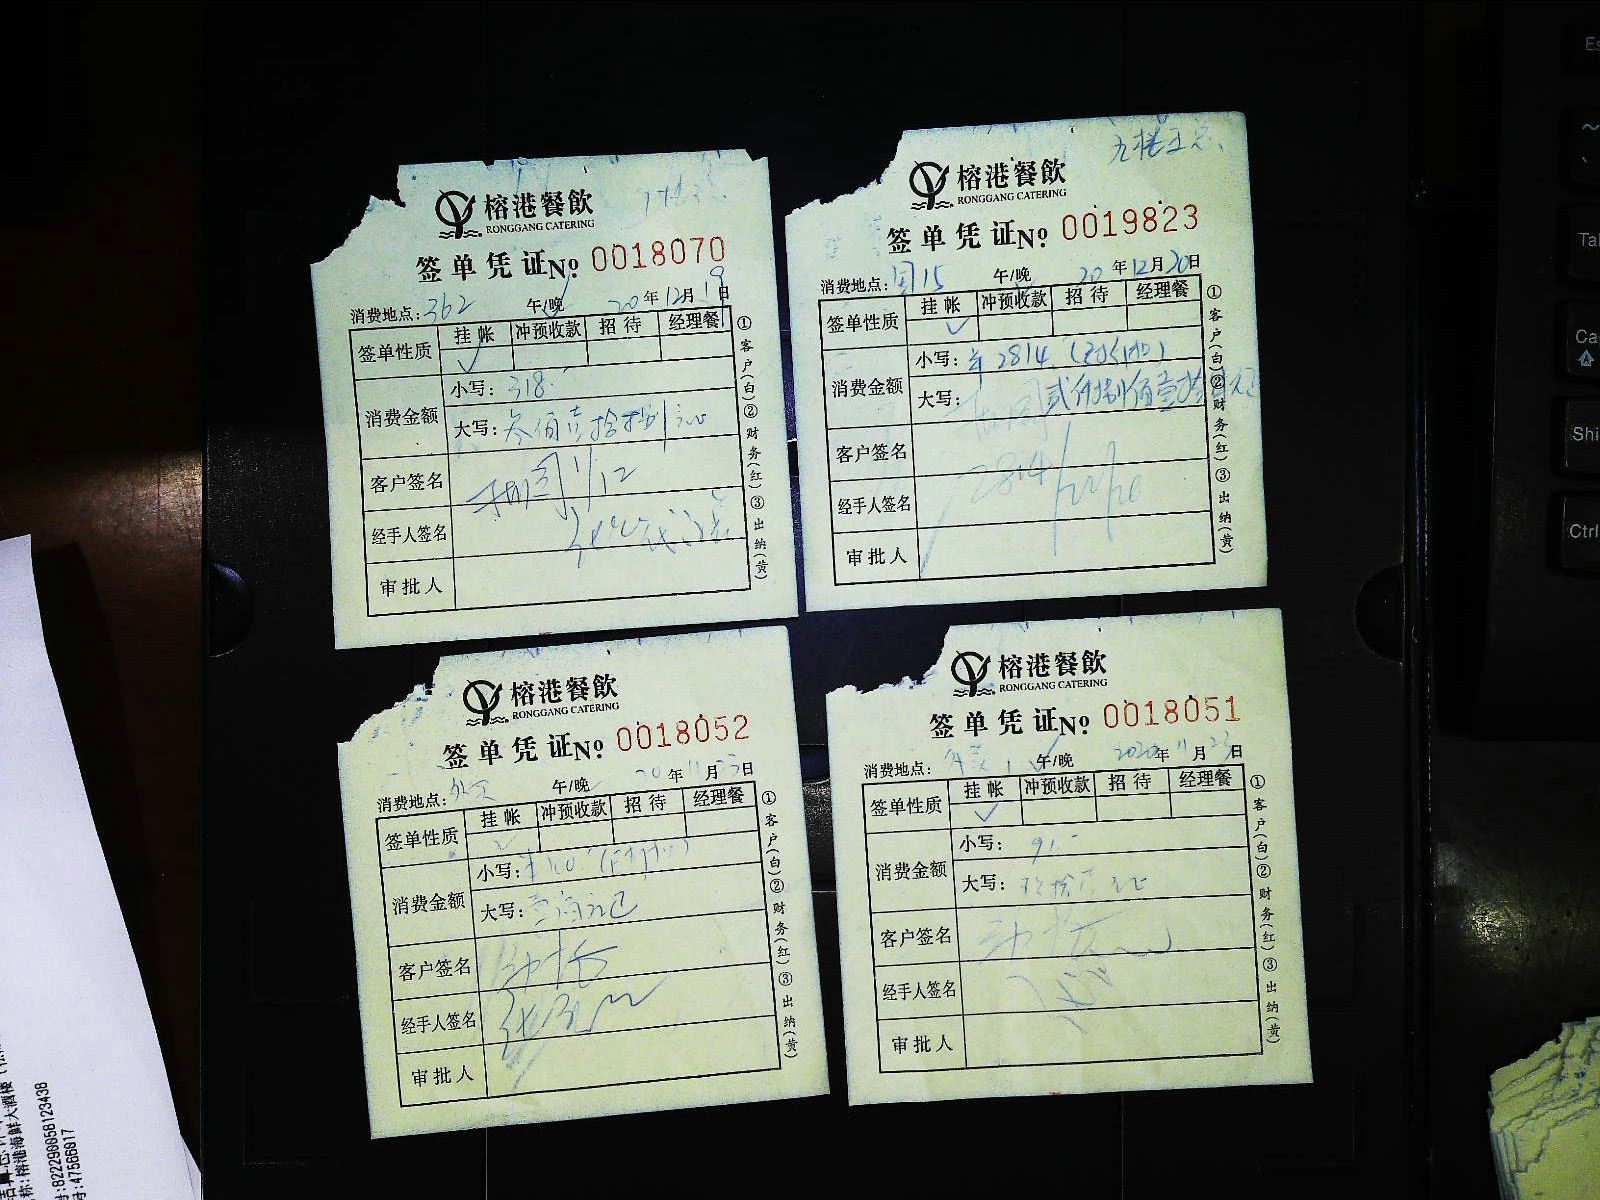 榕港餐飲
RONGGANG CATERING
签单凭证No 0018070
消费地点: 362 午/晚 20年12月19日
签单性质 挂帐 冲预收款 招待 经理餐
消费金额 小写: 318.-
大写: 叁佰壹拾捌元
客户签名
经手人签名
审批人
①客户(白)②财务(红)③出纳(黄)
九楼王总
榕港餐飲
RONGGANG CATERING
签单凭证No 0019823
消费地点: 15 午/晚 20年12月20日
签单性质 挂帐 冲预收款 招待 经理餐
消费金额 小写: ¥2814.
大写: 贰仟捌佰壹拾
客户签名
经手人签名 2814
审批人
①客户(白)②财务(红)③出纳(黄)
榕港餐飲
RONGGANG CATERING
签单凭证No 0018052
消费地点: 外卖 午/晚 20年11月23日
签单性质 挂帐 冲预收款 招待 经理餐
消费金额 小写: ¥100.
大写: 壹佰元
客户签名
经手人签名
审批人
①客户(白)②财务(红)③出纳(黄)
榕港餐飲
RONGGANG CATERING
签单凭证No 0018051
消费地点: 外卖 午/晚 2020年11月23日
签单性质 挂帐 冲预收款 招待 经理餐
消费金额 小写: 91.-
大写: 玖拾
客户签名
经手人签名
审批人
①客户(白)②财务(红)③出纳(黄)
榕港海鲜大酒楼
82229005812343B
47566017
Ctrl